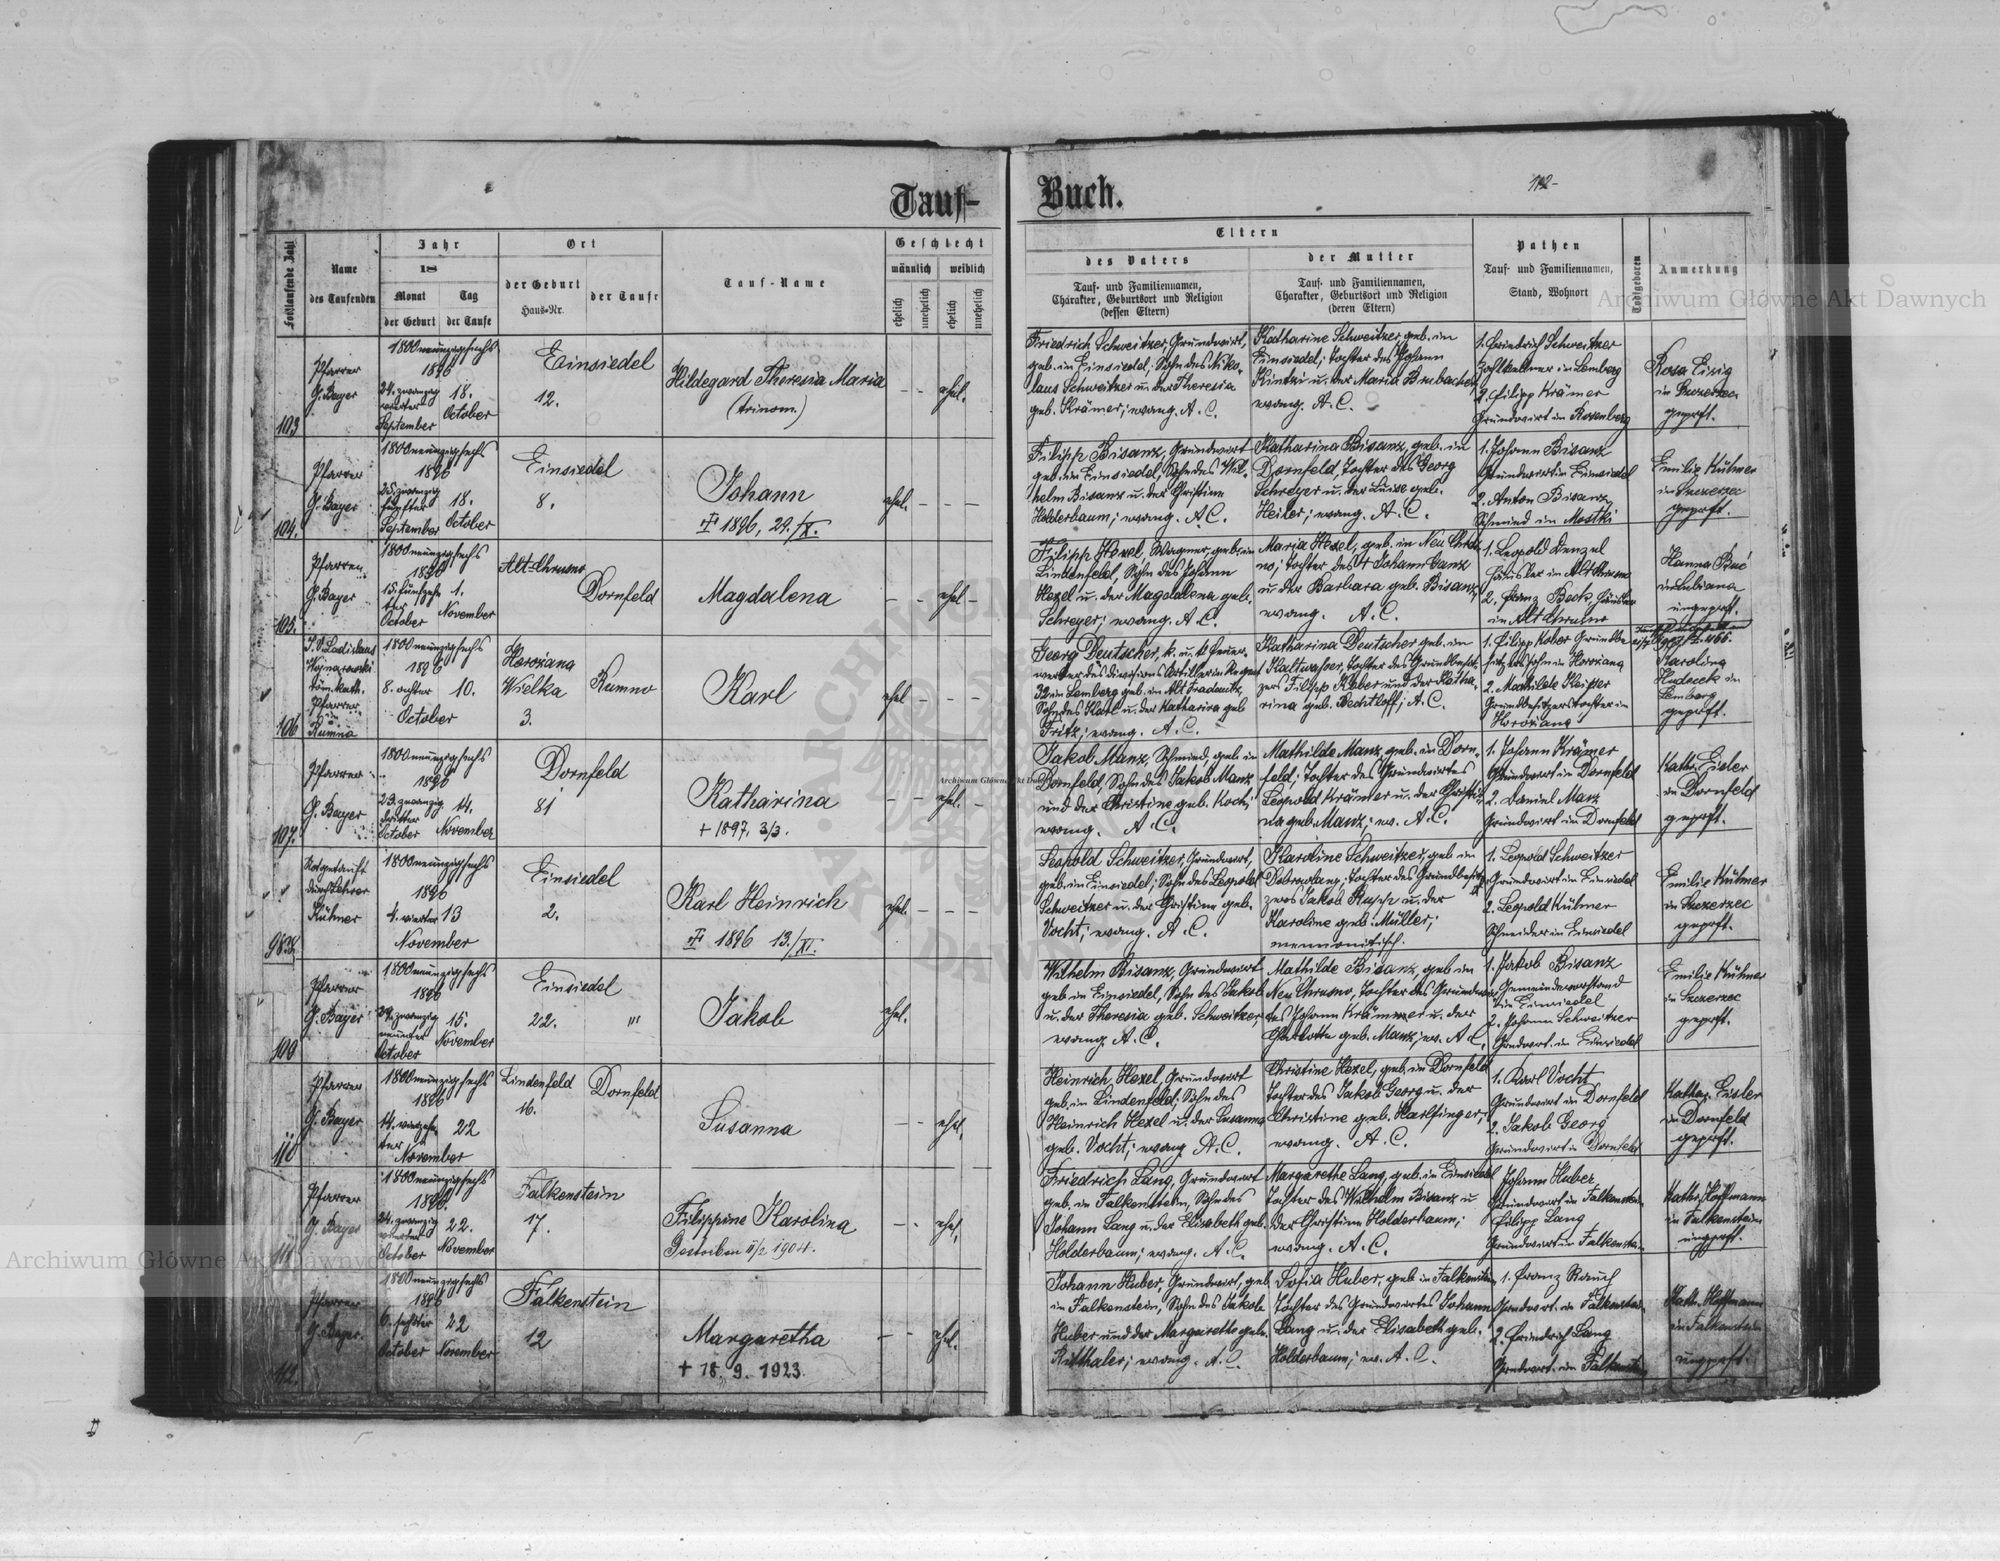 Tauf-
Buch.
112-
Fortlaufende Zahl
Name
des Taufenden
Jahr
18
Monat
Tag
der Geburt
der Taufe
Ort
der Geburt
Haus-Nr.
der Taufe
Tauf-Name
Geschlecht
männlich
weiblich
ehelich
unehelich
ehelich
unehelich
Eltern
des Vaters
Tauf- und Familiennamen,
Charakter, Geburtsort und Religion
(dessen Eltern)
der Mutter
Tauf- und Familiennamen,
Charakter, Geburtsort und Religion
(deren Eltern)
Pathen
Tauf- und Familiennamen,
Stand, Wohnort
Todtgeboren
Anmerkung
103
Pfarrer
G. Bayer
1800neunzigsechs
1896
24. zwanzig
vierter
September
18.
October
Einsiedel
12.
Hildegard Theresia Maria
(trinom.)
ehel.
Friedrich Schweitzer, Grundwirt,
geb. in Einsiedel; Sohn des Niko-
laus Schweitzer u. der Theresia
geb. Krämer; evang. A. C.
Katharine Schweitzer, geb. in
Einsiedel; Tochter des Johann
Kintzi u. der Maria Brubacher,
evang. A. C.
1. Friedrich Schweitzer
Zahlkellner in Lemberg
2. Filipp Krämer
Grundwirt in Rosenberg
Rosa Eisig
in Szczerzec
geprft.
104.
Pfarrer
G. Bayer
1800neunzigsechs
1896
25. zwanzig
fünfter
September
18.
October
Einsiedel
8.
Johann
1896, 29./X.
ehel.
Filipp Bisanz, Grundwirt
geb. in Einsiedel, Sohn des Wil-
helm Bisanz u. der Christine
Holderbaum; evang. A. C.
Katharina Bisanz, geb. in
Dornfeld, Tochter des Georg
Schreyer u. der Luise geb.
Heiler; evang. A. C.
1. Johann Bisanz
Grundwirt in Einsiedel
2. Anton Bisanz
Schmied in Mostki
Emilie Kühner
in Szczerzec
geprft.
105.
Pfarrer
G. Bayer
1800neunzigsechs
1896
15. fünfzehn
ter
October
1.
November
Alt-Chrusno
Dornfeld
Magdalena
ehel
Filipp Hexel, Wagner, geb. in
Lindenfeld, Sohn des Johann
Hexel u. der Magdalena geb.
Schreyer; evang. A. C.
Maria Hexel, geb. in Neu Chrus-
no; Tochter des † Johann Ganz
u. der Barbara geb. Bisanz,
evang. A. C.
1. Leopold Denzel
Häusler in Alt Chrusno
2. Franz Beck, Häusler
in Alt Chrusno
Hanna Buć
in Lubiana
ungeprft.
106
J. S. Ladislaus
röm. kath.
Pfarrer
in
Rumno
1800neunzigsechs
1896
8. achter
October
10.
Horożana
Wielka
3.
Rumno
Karl
ehel
Georg Deutscher, k. u. k. Feuer-
werker des Divisions Artillerie Regmt.
32 in Lemberg geb. in Alt Fradautz,
Sohn des Karl u. der Katharina geb
Fritz; evang. A. C.
Katharina Deutscher geb. in
Kaltwasser, Tochter des Grundbesit-
zers Filipp Kober und der Katha-
rina geb. Bechtloff; A. C.
1. Filipp Kober Grundbe-
sitzerssohn in Horożana
2. Mathilde Keiper
Grundbesitzerstochter in
Horożana
Karolina
Hudecek in
Lemberg
geprft.
107.
Pfarrer
G. Bayer
1800neunzigsechs
1896
23. zwanzig
dritter
October
14.
November
Dornfeld
81
Katharina
+ 1897, 3/3.
ehel.
Jakob Manz, Schmied, geb. in
Dornfeld, Sohn des Jakob Manz
und der Christine geb. Koch;
evang. A. C.
Mathilde Manz, geb. in Dorn-
feld; Tochter des Grundwirtes
Leopold Krämer u. der Christi-
na geb. Manz; ev. A. C.
1. Johann Krämer
Grundwirt in Dornfeld
2. Daniel Manz
Grundwirt in Dornfeld
Kath. Eisler
in Dornfeld
geprft.
Notgetauft
durch Lehrer
Kühner
1800neunzigsechs
1896
4. vierter
November
13
Einsiedel
2.
Karl Heinrich
1896 13./XI.
ehel.
Leopold Schweitzer, Grundwirt,
geb. in Einsiedel; Sohn des Leopold
Schweitzer u. der Christine geb.
Vocht; evang. A. C.
Karoline Schweitzer, geb in
Dobrowlany, Tochter des Grundbesit-
zers Jakob Rupp u. der
Karoline geb. Müller;
mennonitisch.
1. Leopold Schweitzer
Grundwirt in Einsiedel
2. Leopold Kühner
Schneider in Einsiedel
Emilie Kühner
in Szczerzec
geprft.
109
Pfarrer
G. Bayer
1800neunzigsechs
1896
29. zwanzig
neunter
October
15.
November
Einsiedel
22.
"'
Jakob
ehel.
Wilhelm Bisanz, Grundwirt
geb in Einsiedel, Sohn des Jakob
u. der Theresia geb. Schweitzer;
evang A. C.
Mathilde Bisanz, geb in
Neu Chrusno, Tochter des Grundwir-
tes Johann Krämmer u. der
Charlotte geb. Manz; ev. A. C.
1. Jakob Bisanz
Gemeindevorstand
in Einsiedel
2. Johann Schweitzer
Grndwirt. in Einsiedel
Emilie Kühner
in Szczerzec
geprft.
110
Pfarrer
G. Bayer
1800neunzigsechs
1896
14. vierzehn
ter
November
22
Lindenfeld
16.
Dornfeld
Susanna
ehel.
Heinrich Hexel, Grundwirt
geb. in Lindenfeld; Sohn des
Heinrich Hexel u. der Susanna
geb. Vocht; evang A. C.
Christine Hexel, geb. in Dornfeld
Tochter des Jakob Georg u. der
Christine geb. Harlfinger;
evang. A. C.
1. Karl Vocht
Grundwirt in Dornfeld
2. Jakob Georg
Grundwirt in Dornfeld
Kathar. Eisler
in Dornfeld
geprft.
111
Pfarrer
G. Bayer
1800neunzigsechs
1896.
24. zwanzig
vierter
October
22.
November
Falkenstein
17.
Filippine Karolina
Gestorben 11/2 1904.
ehel.
Friedrich Lang, Grundwirt
geb. in Falkenstein, Sohn des
Johann Lang u. der Elisabeth geb.
Holderbaum; evang. A. C.
Margarethe Lang, geb. in Einsiedel
Tochter des Wilhelm Bisanz u.
der Christine Holderbaum;
evang. A. C.
Johann Huber
Grundwirt in Falkenstein
Filipp Lang
Grundwirt in Falkenstein
Kath. Hoffmann
in Falkenstein
ungeprft.
112.
Pfarrer
G. Bayer
1800neunzigsechs
1896
6. sechster
October
22
November
Falkenstein
12
Margaretha
+ 18. 9. 1923.
ehel.
Johann Huber, Grundwirt, geb
in Falkenstein, Sohn des Jakob
Huber und der Margarethe geb.
Ritthaler; evang. A. C.
Sofia Huber, geb in Falkenstein
Tochter des Grundwirtes Johann
Lang u. der Elisabeth geb.
Holderbaum; ev. A. C.
1. Franz Rauch
Grndwirt. in Falkenstein
2. Friedrich Lang
Grndwirt. in Falkenstein
Kath. Hoffmann
in Falkenstein
ungeprft.
Archiwum Główne Akt Dawnych
Archiwum Główne Akt Dawnych
Archiwum Główne Akt Dawnych